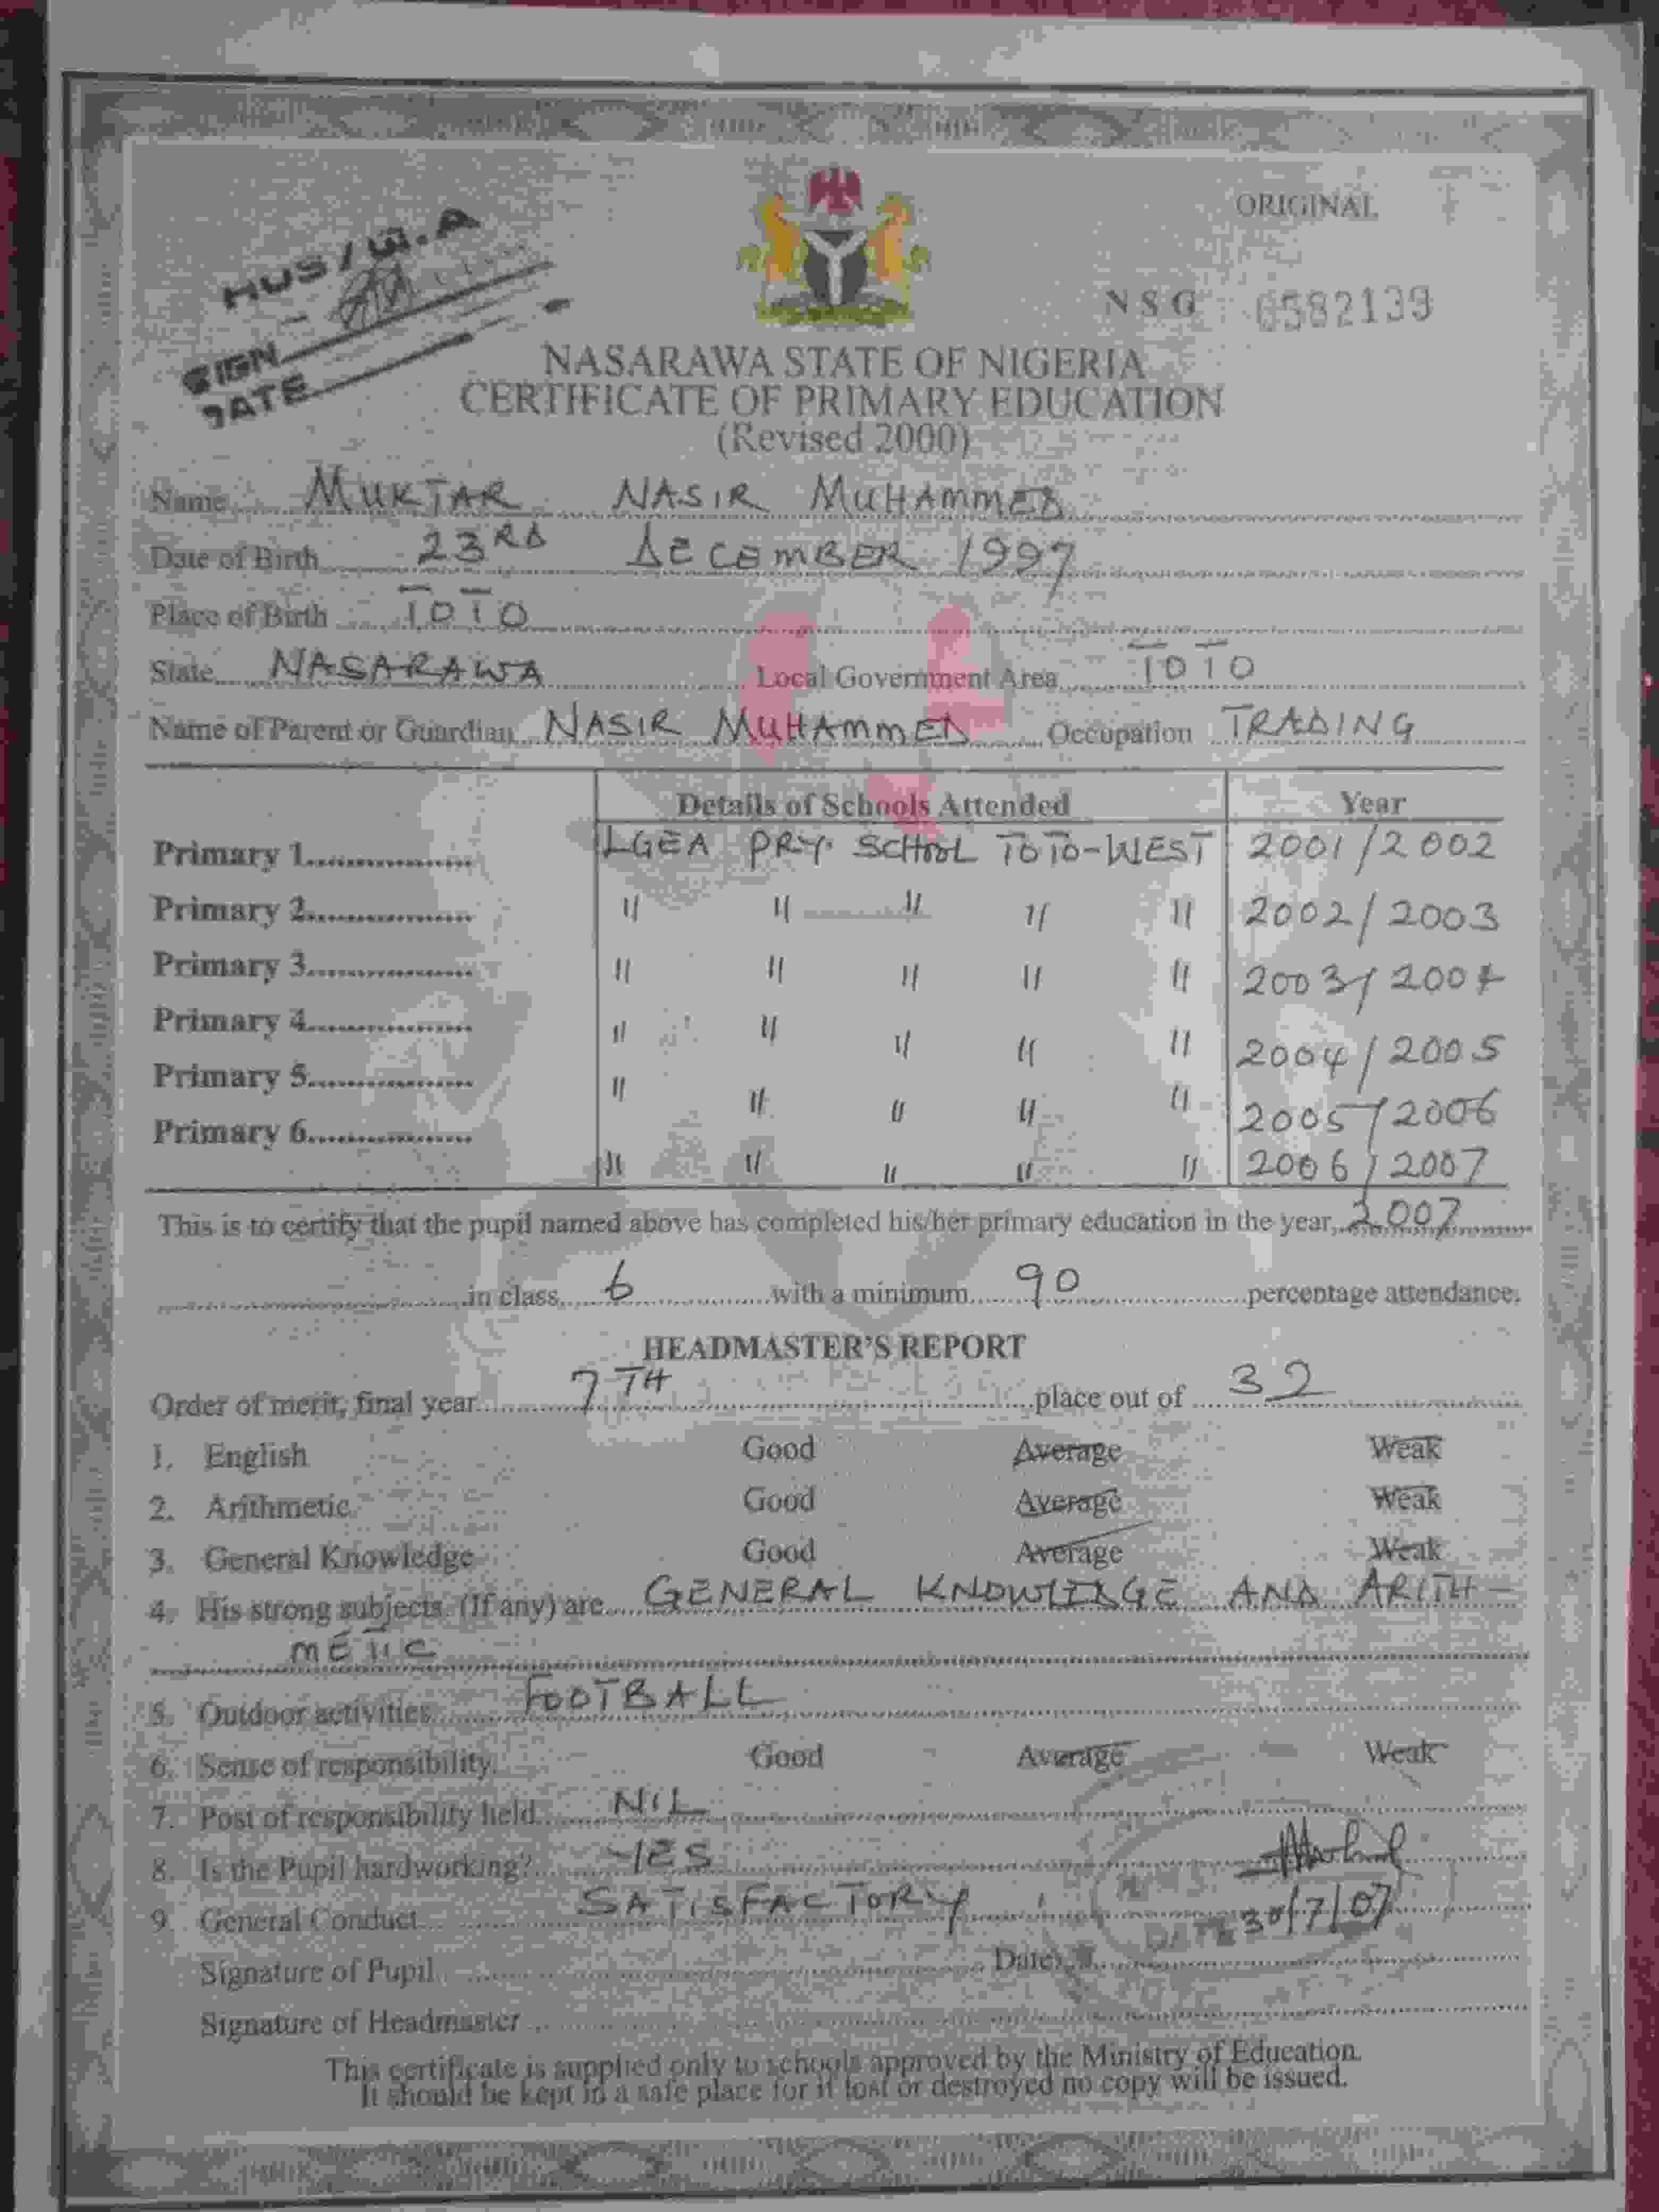 ORIGINAL
HUS/G.A
SIGN
DATE
NSG 0582139
NASARAWA STATE OF NIGERIA
CERTIFICATE OF PRIMARY EDUCATION
(Revised 2000)
Name MUKTAR NASIR MUHAMMED
Date of Birth 23RD DECEMBER 1997
Place of Birth TOTO
State NASARAWA Local Government Area TOTO
Name of Parent or Guardian NASIR MUHAMMED Occupation TRADING
Details of Schools Attended Year
Primary 1 LGEA PRY. SCHOOL TOTO-WEST 2001/2002
Primary 2 " " " " " 2002/2003
Primary 3 " " " " " 2003/2004
Primary 4 " " " " " 2004/2005
Primary 5 " " " " " 2005/2006
Primary 6 " " " " " 2006/2007
This is to certify that the pupil named above has completed his/her primary education in the year 2007
in class 6 with a minimum 90 percentage attendance.
HEADMASTER'S REPORT
Order of merit, final year 7TH place out of 32
1. English Good Average Weak
2. Arithmetic Good Average Weak
3. General Knowledge Good Average Weak
4. His strong subjects (If any) are GENERAL KNOWLEDGE AND ARITH-
METIC
5. Outdoor activities FOOTBALL
6. Sense of responsibility Good Average Weak
7. Post of responsibility held NIL
8. Is the Pupil hardworking? YES
9. General Conduct SATISFACTORY
DATE 30/7/07
Signature of Pupil Date
Signature of Headmaster
This certificate is supplied only to schools approved by the Ministry of Education.
It should be kept in a safe place for if lost or destroyed no copy will be issued.